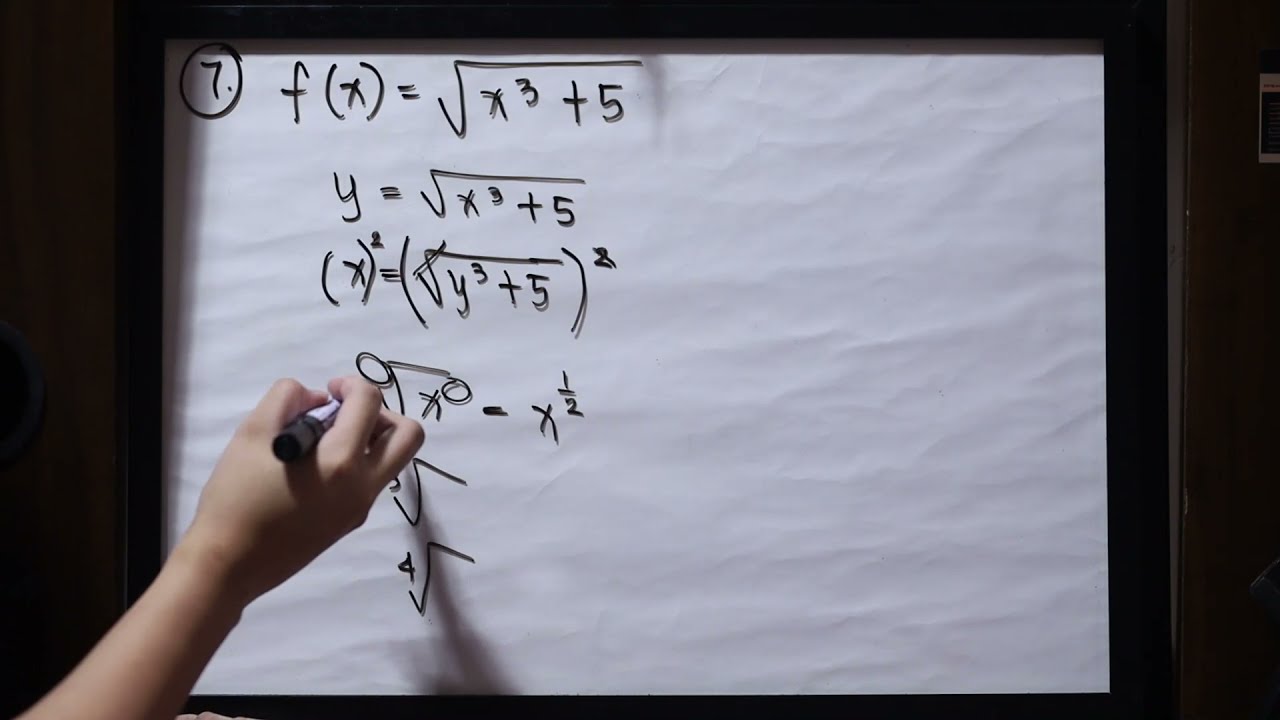 7. f(x) = √(x³ + 5)
y = √(x³ + 5)
(x)² = (√(y³ + 5))²
√x = x^(1/2)
3√
4√